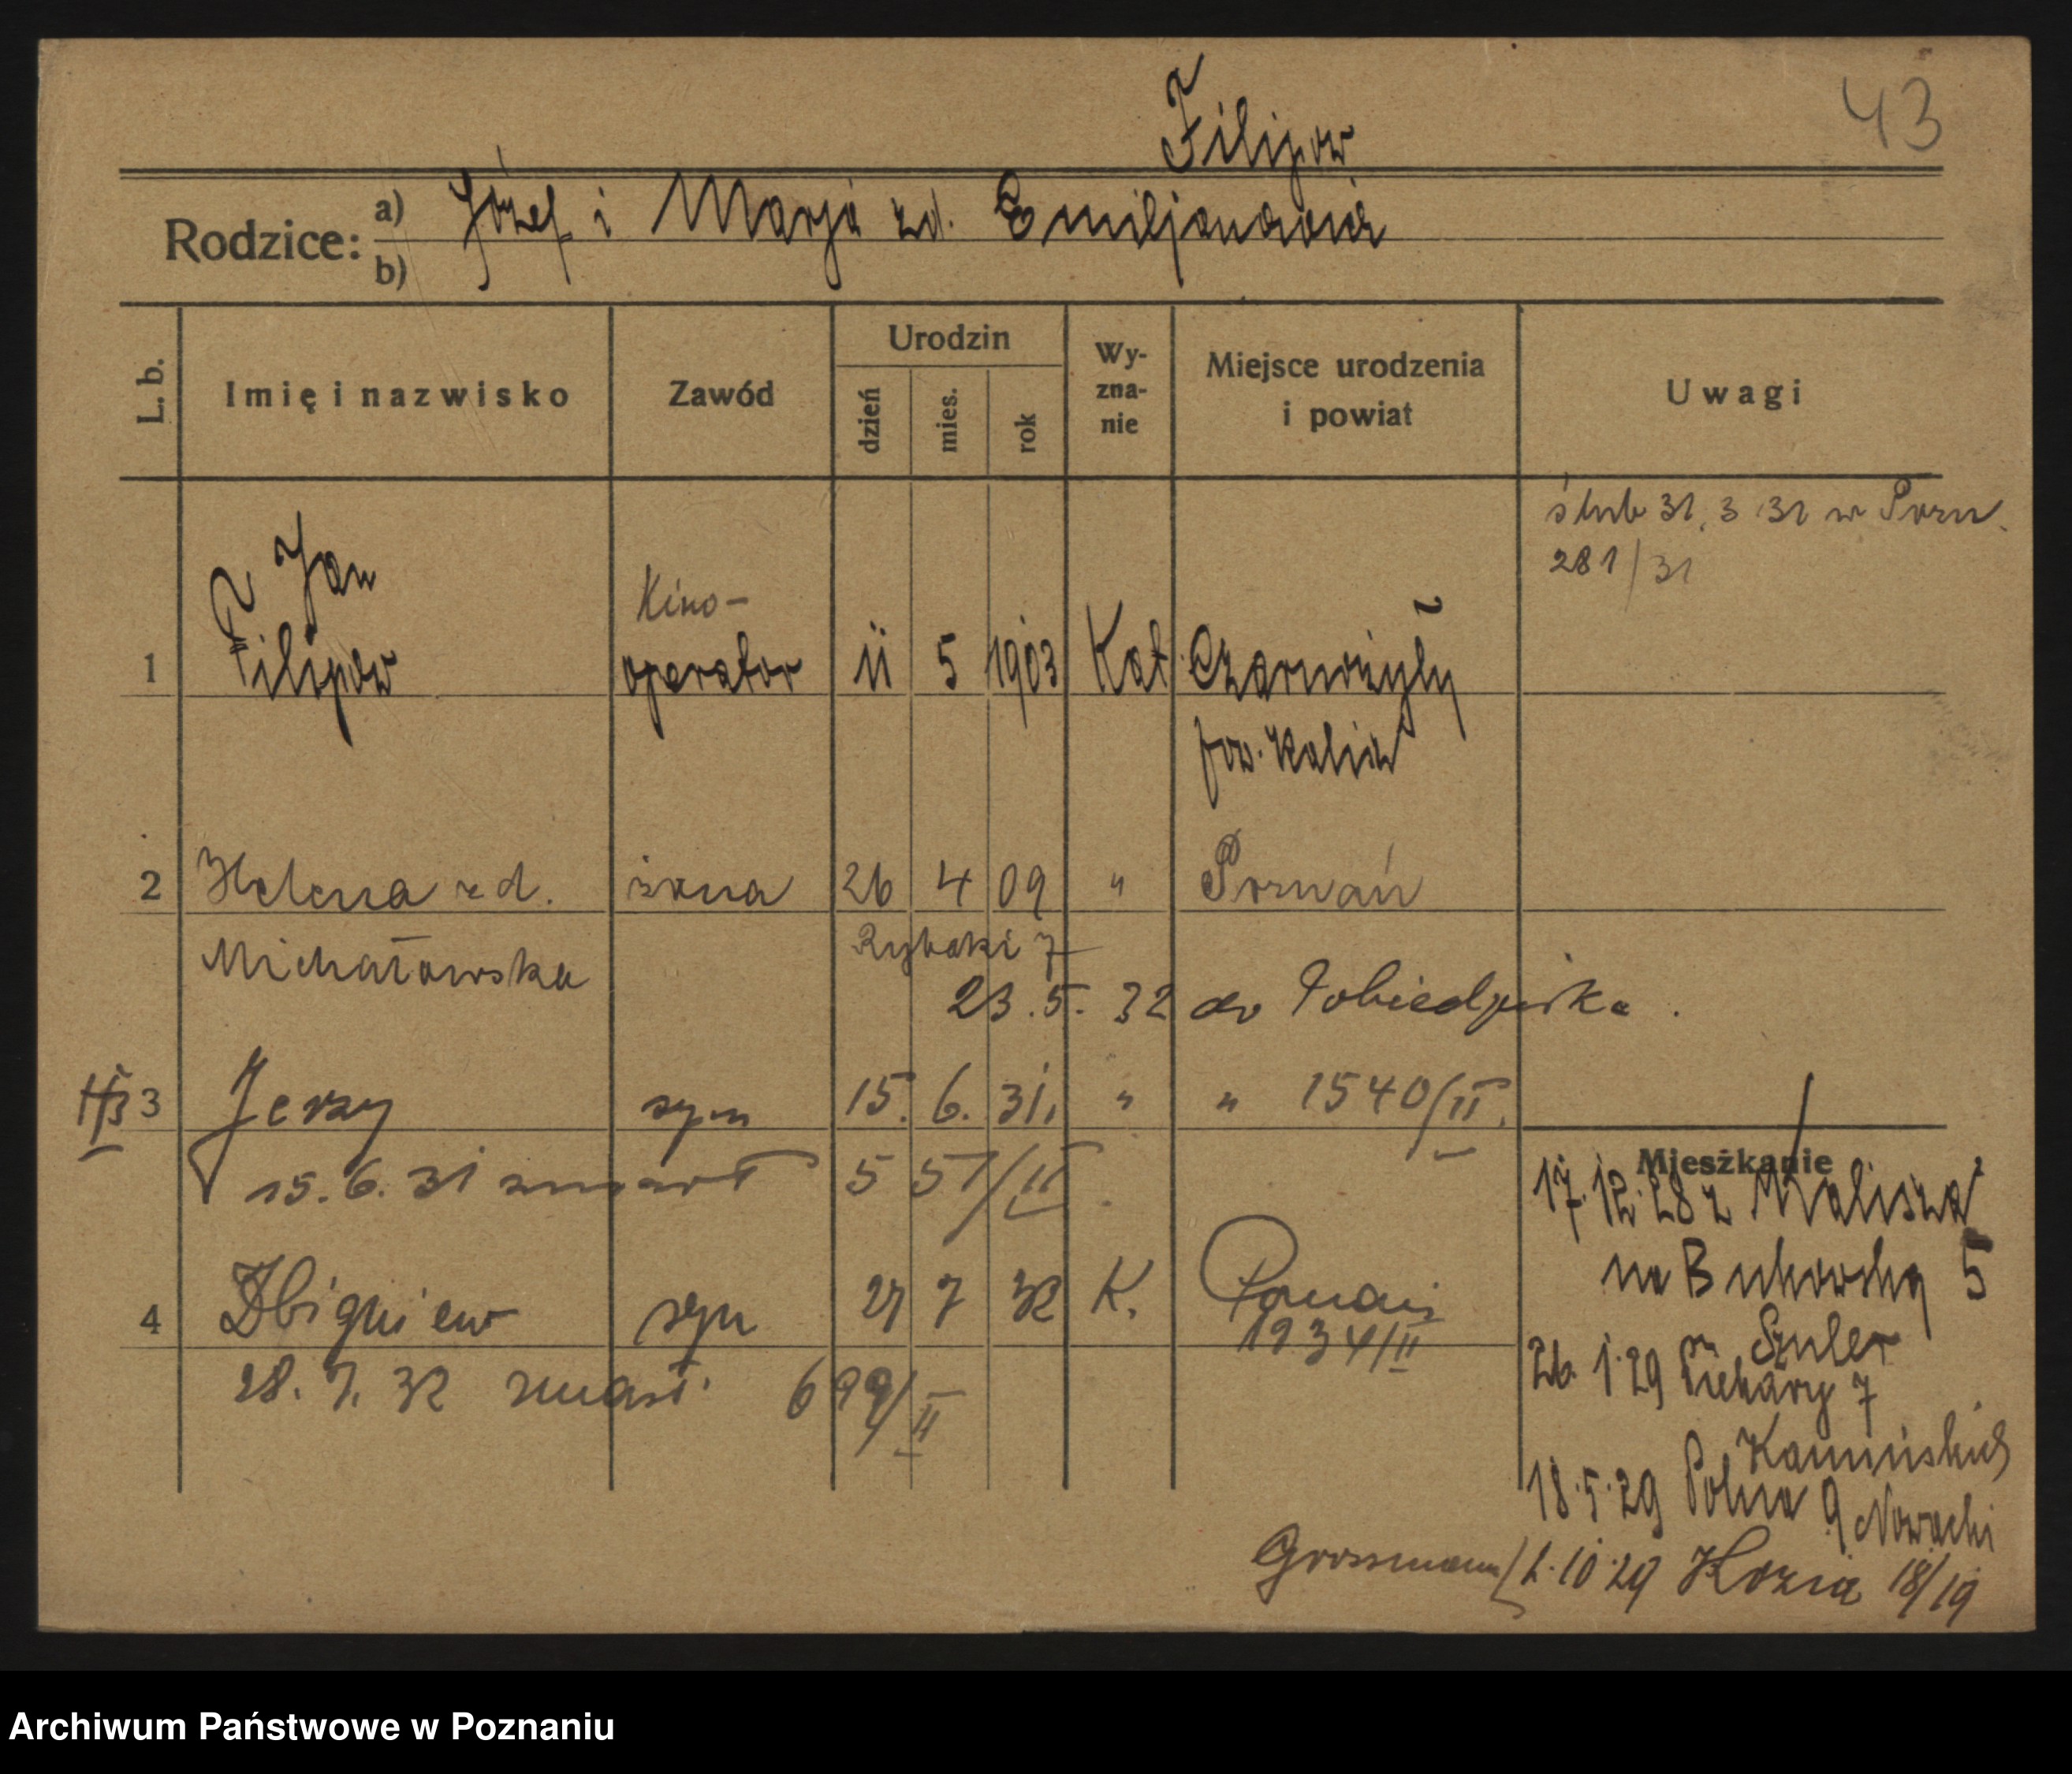 Filipow
43
Rodzice: a) Józef i Marja zd. Emiljanowicz
b)
L. b.
Imię i nazwisko
Zawód
Urodzin
dzień
mies.
rok
Wy-
zna-
nie
Miejsce urodzenia
i powiat
Uwagi
ślub 31. 3 31 w Pozn.
281/31
Jan
Kino-
1 Filipow operator 11 5 1903 Kat Czarnożyły
pow. Kalisz
2 Helena zd. żona 26 4 09 " Poznań
Michałowska
Rybaki 7
23. 5. 32 do Pobiedziska.
3 Jerzy syn 15. 6. 31. " " 1540/II.
15. 6. 31 zmarł 551/II.
4 Zbigniew syn 27 7 32 K. Poznań
1934/II
28. 7. 32 zmarł 699/II
Mieszkanie
17. 12. 28 z Kalisza
na Bukowską 5
Szuler
26. 1. 29 Piekary 7
Kamiński
18. 5. 29 Polna 9 Nowacki
Grossmann 1. 10. 29 Kozia 18/19
Archiwum Państwowe w Poznaniu